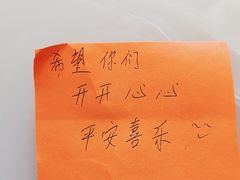 希望你们
开开心心
平安喜乐